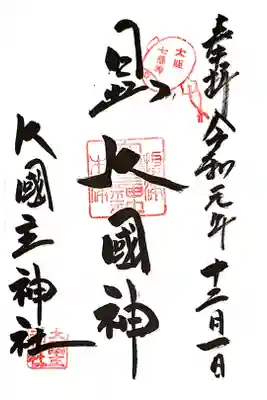 奉拝 令和元年 十二月一日
大阪
七福神
大國神
大國主神社